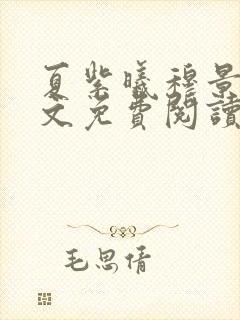 夏紫曦穆景
文免費閱讀
毛思倩